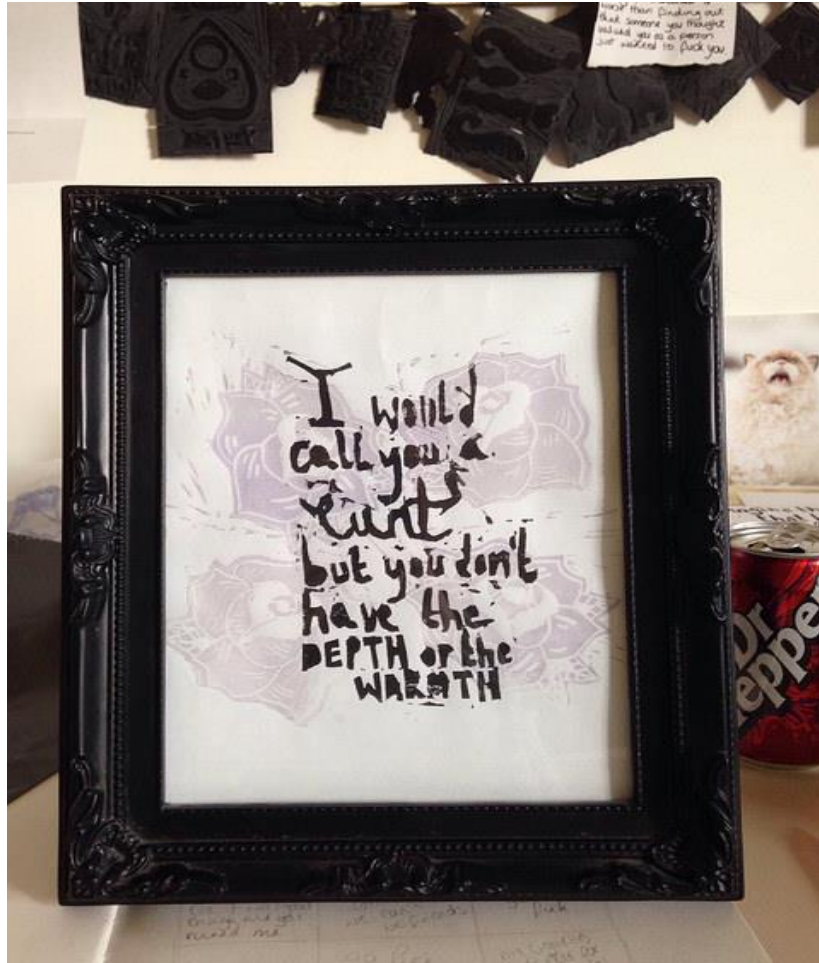 worse than finding out
that someone you thought
valued you as a person
just wanted to fuck you
I would
call you a
cunt
but you don't
have the
DEPTH or the
WARMTH
Dr
Pepper
ruined me